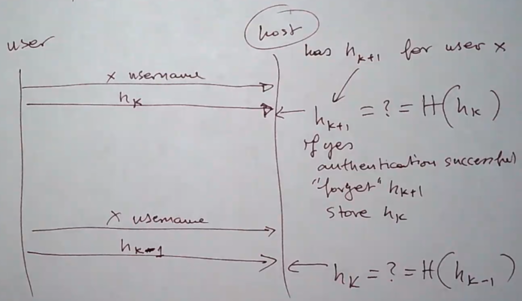 user
host
has h_{k+1} for user x
x username
h_k
h_{k+1} =?= H(h_k)
If yes
authentication successful
"forget" h_{k+1}
store h_k
x username
h_{k-1}
h_k =?= H(h_{k-1})